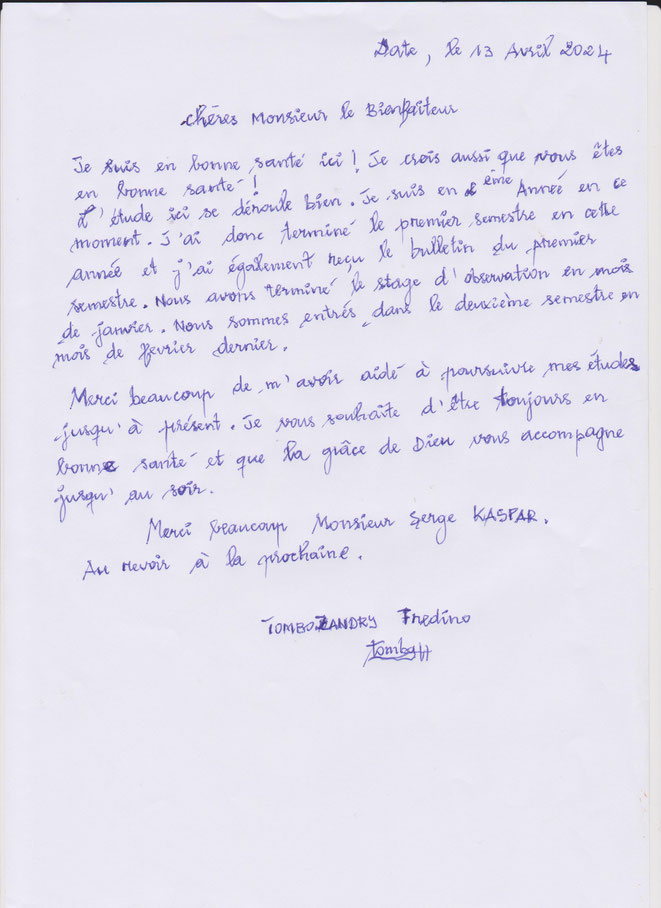 Date, le 13 Avril 2024
chères Monsieur le Bienfaiteur
Je suis en bonne santé ici ! Je crois aussi que vous êtes
en bonne santé !
L'étude ici se déroule bien. Je suis en 2 ème Année en ce
moment. J'ai donc terminé le premier semestre en cette
année et j'ai également reçu le bulletin du premier
semestre. Nous avons terminé le stage d'observation en mois
de janvier. Nous sommes entrés dans le deuxième semestre en
mois de fevrier dernier.
Merci beaucoup de m'avoir aidé à poursuivre mes études
jusqu'à présent. Je vous souhaite d'être toujours en
bonne santé et que la grâce de Dieu vous accompagne
jusqu'au soir.
Merci beaucoup Monsieur Serge KASPAR.
Au revoir à la prochaine.
TOMBOZANDRY Fredino